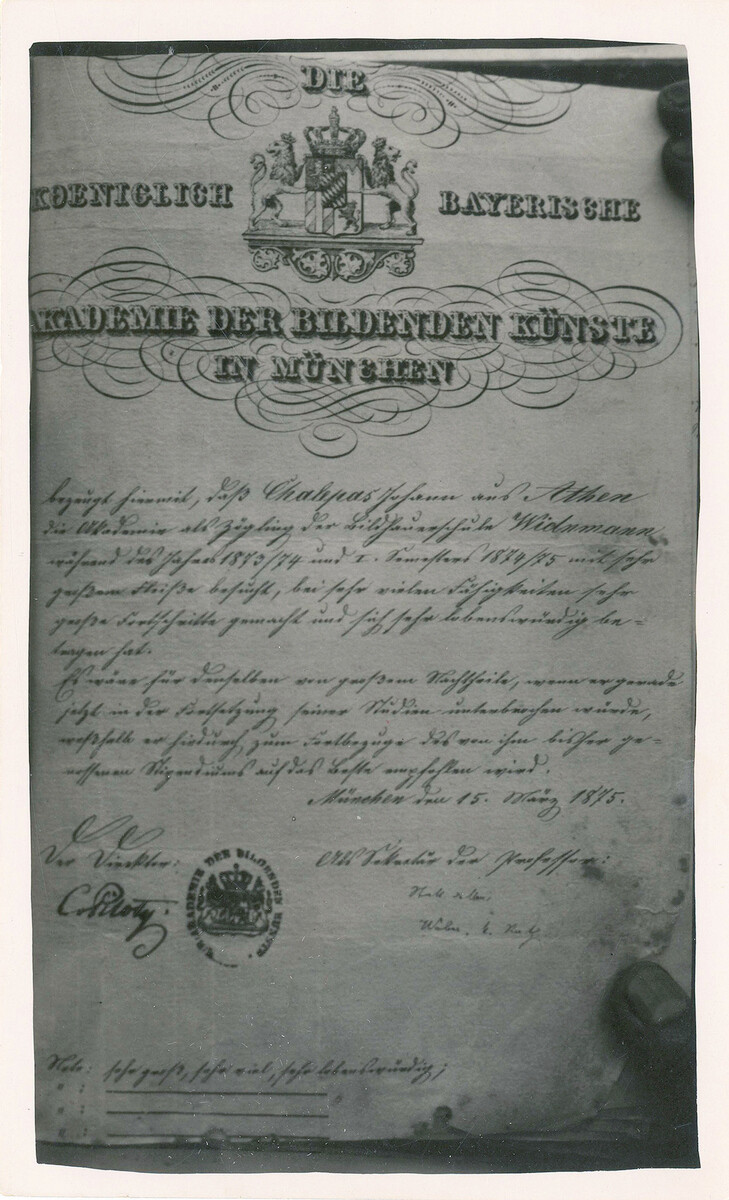 DIE
KOENIGLICH BAYERISCHE
AKADEMIE DER BILDENDEN KÜNSTE
IN MÜNCHEN
bezeugt hiermit, daß Chalepas Johann aus Athen
die Akademie als Zögling der Bildhauerschule Widnmann
während des Jahres 1873/74 und I. Semesters 1874/75 mit sehr
großem Fleiße besucht, bei sehr vielen Fähigkeiten sehr
große Fortschritte gemacht und sich sehr lobenswürdig be=
tragen hat.
Es wäre für denselben von großem Nachtheile, wenn er gerade
jetzt in der Fortsetzung seiner Studien unterbrochen würde,
weßhalb er hiedurch zum Fortbezuge des von ihm bisher ge=
nossenen Stipendiums auf das Beste empfohlen wird.
München den 15. März 1875.
Der Direktor: Als Sekretär der Professor:
C. Piloty. AKADEMIE DER BILDENDEN KÜNSTE
Note: sehr groß, sehr viel, sehr lobenswürdig;
" :
" :
" :